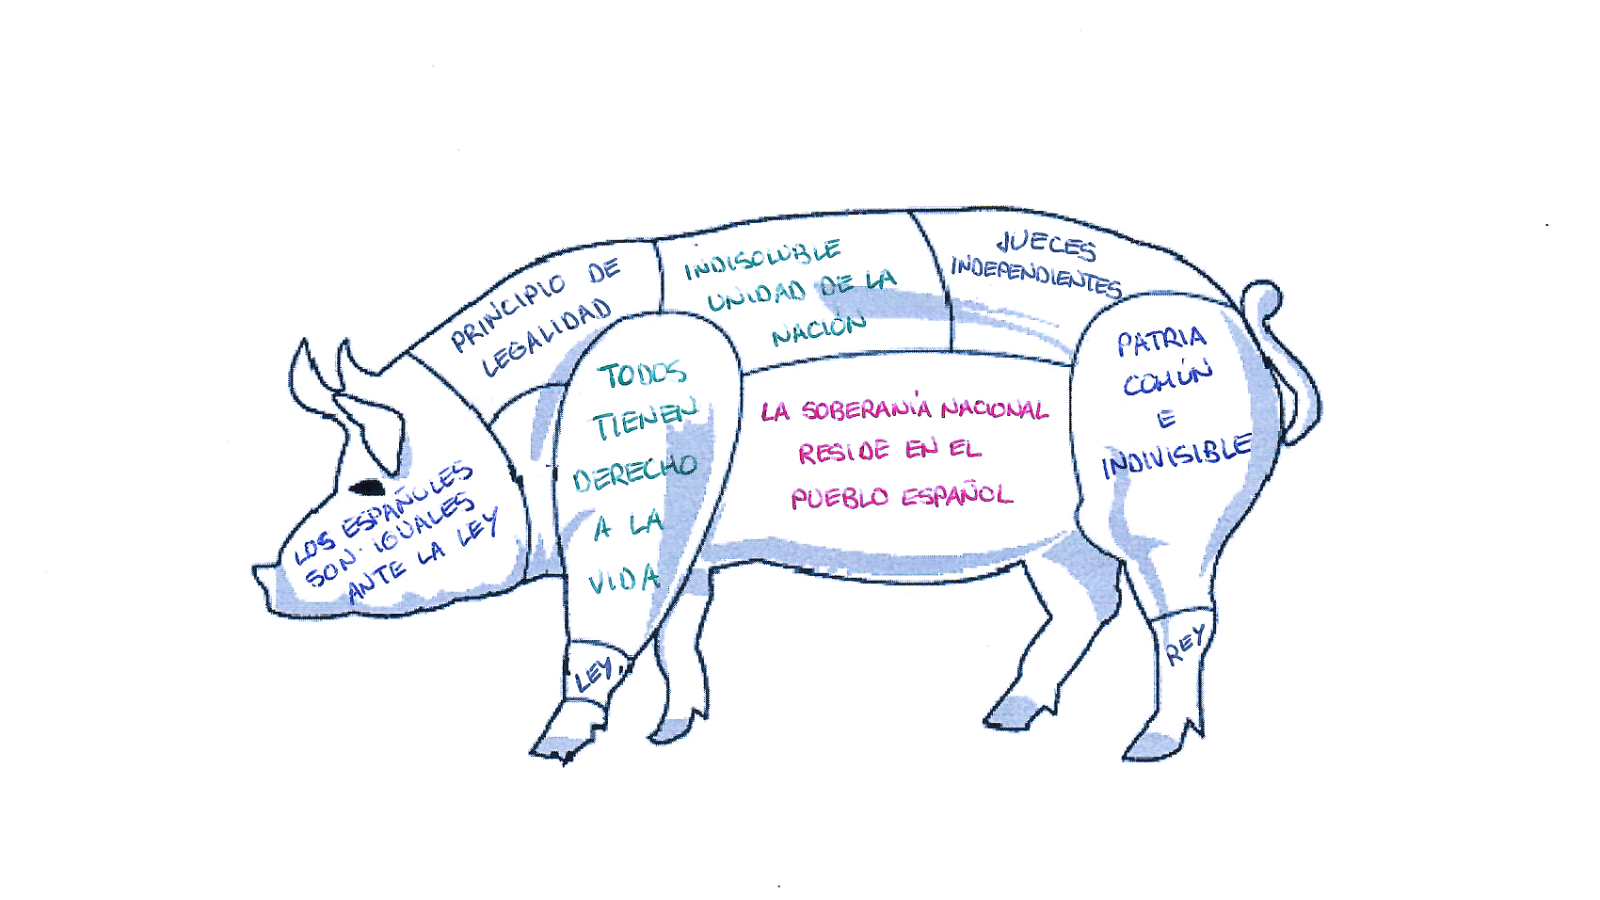 PRINCIPIO DE
LEGALIDAD
INDISOLUBLE
UNIDAD DE LA
NACIÓN
JUECES
INDEPENDIENTES
LOS ESPAÑOLES
SON IGUALES
ANTE LA LEY
TODOS
TIENEN
DERECHO
A LA
VIDA
LA SOBERANÍA NACIONAL
RESIDE EN EL
PUEBLO ESPAÑOL
PATRIA
COMÚN
E
INDIVISIBLE
LEY
REY